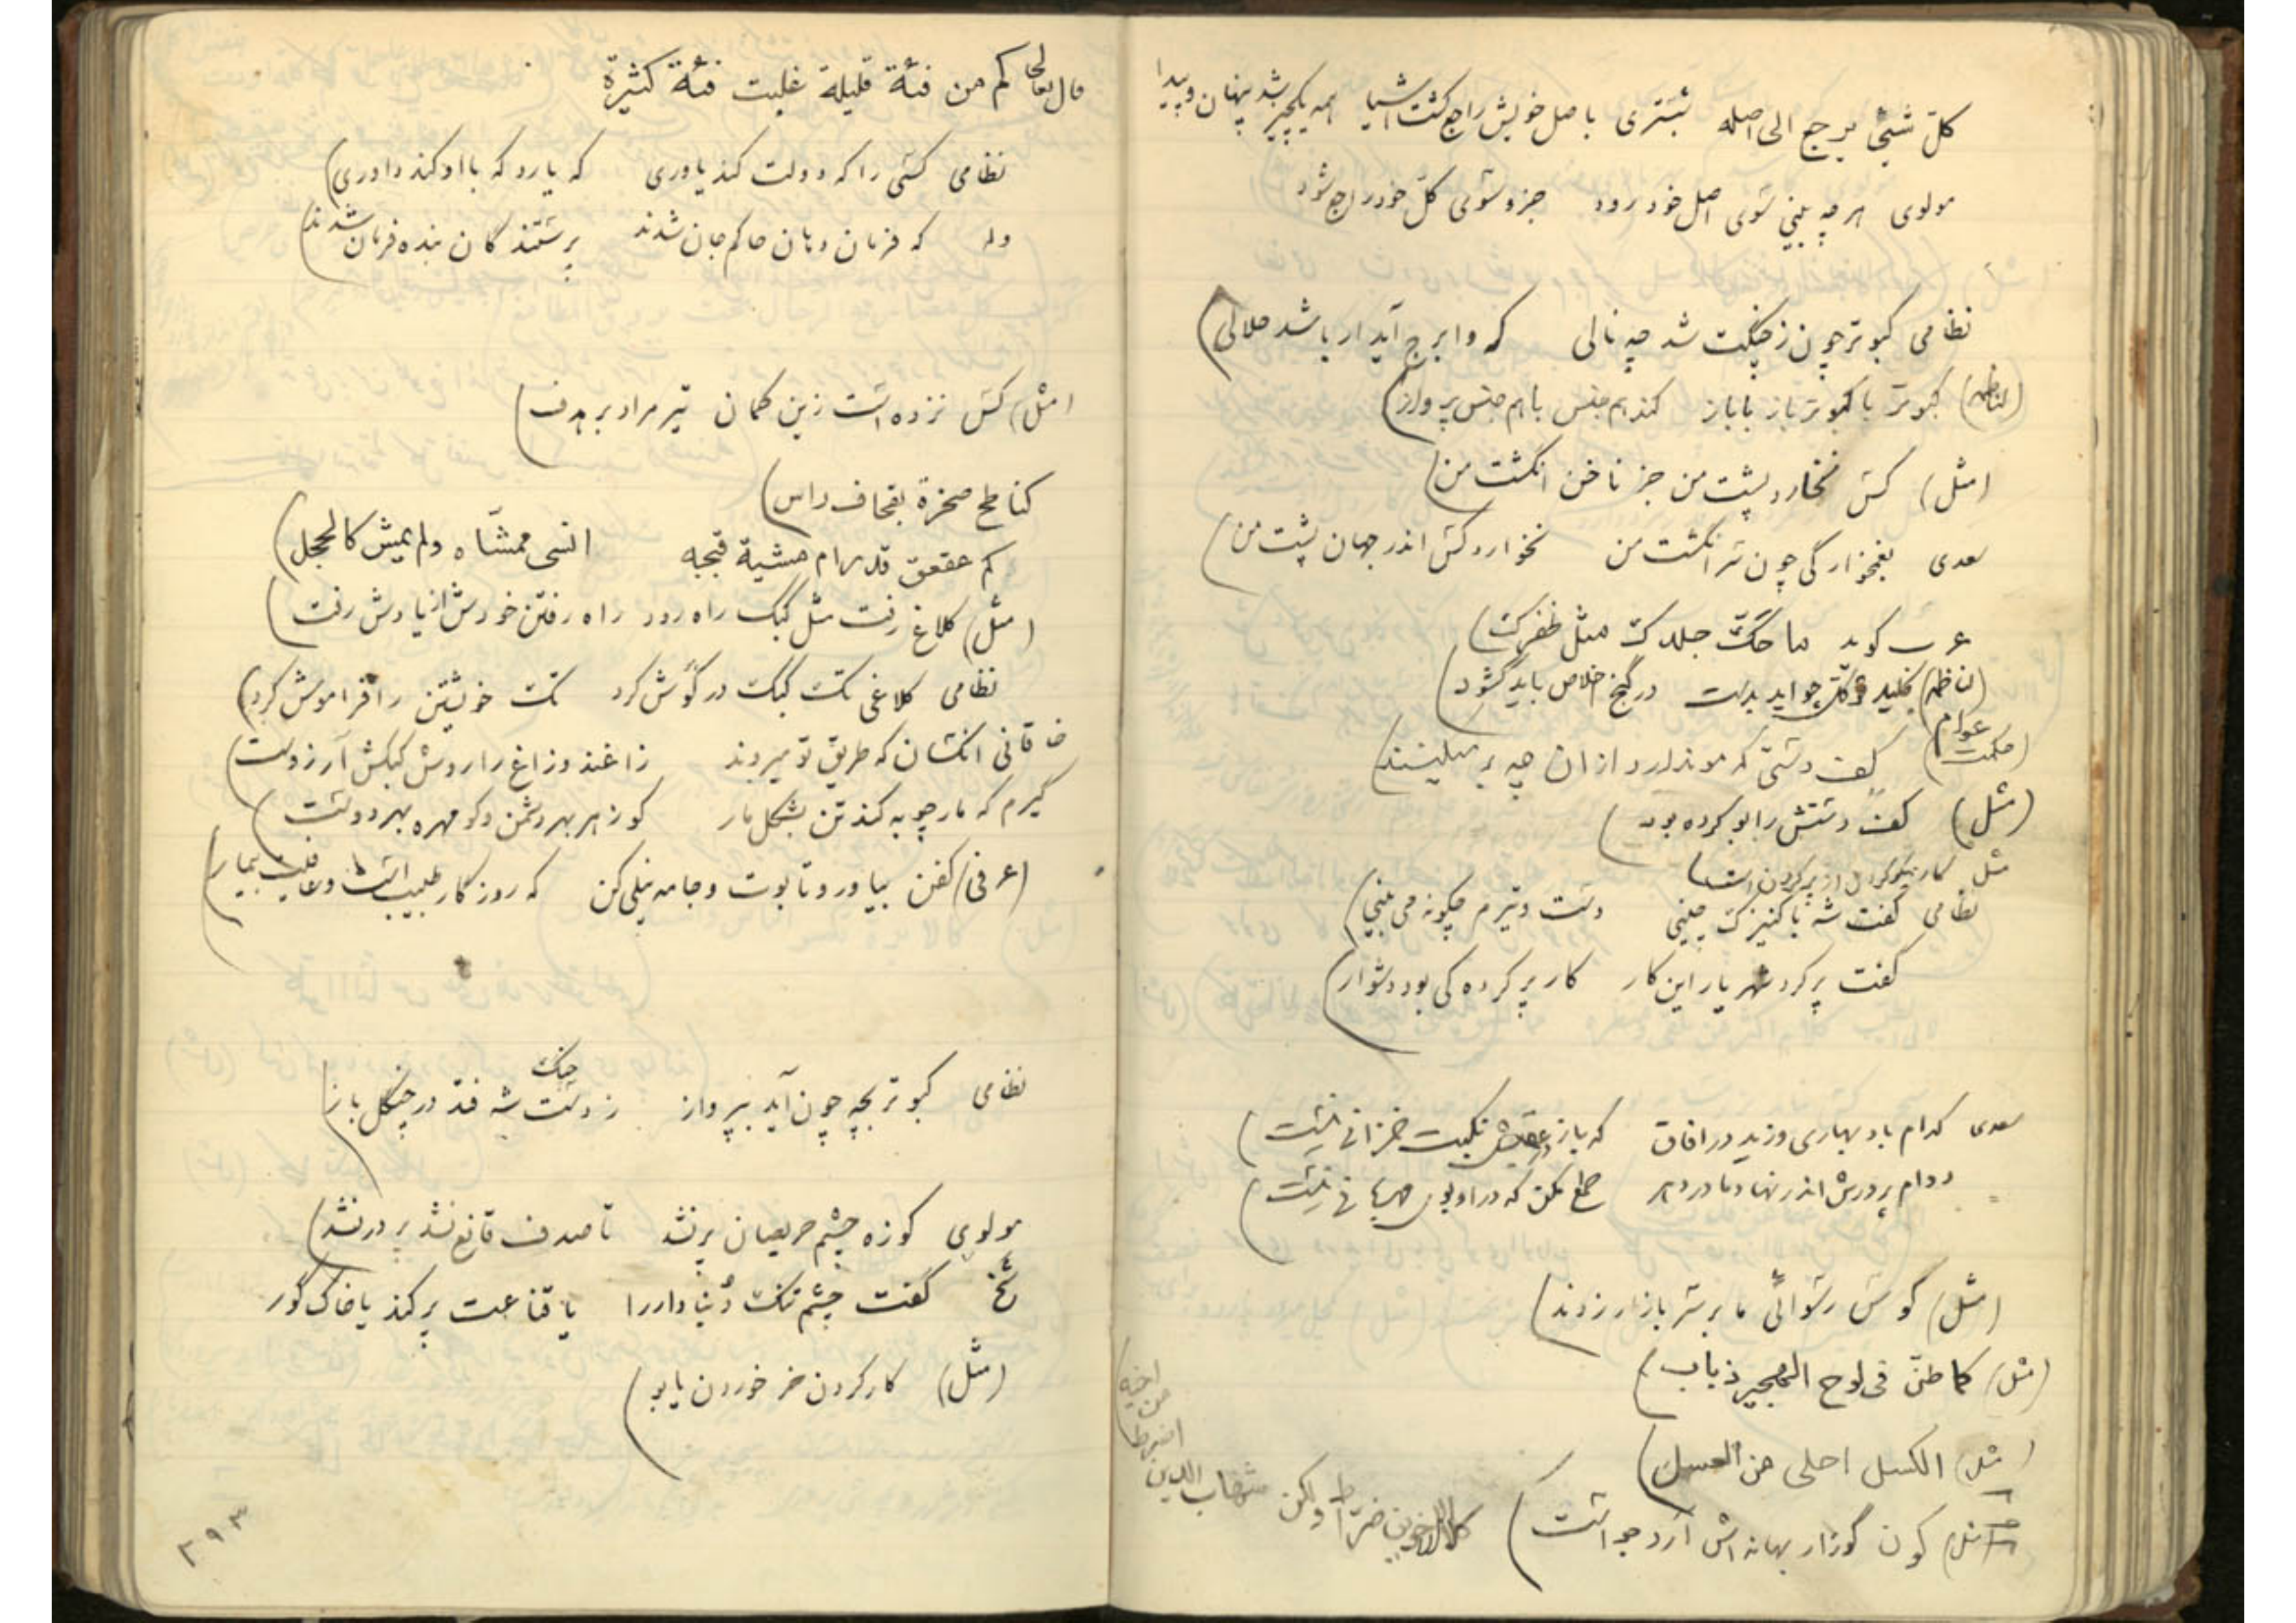 کلّ شیئ یرجع الی اصله شبستری باصل خویش راجع گشت اشیا همه یکچیز شد پنهان و پیدا
مولوی هر چه بینی سوی اصل خود رود جزو سوی کلّ خود راجع شود
نظامی کبوتر چون ز چنگت شد چه نالی که وا برج آید ار باشد حلالی
کبوتر با کبوتر باز با باز کند هم جنس با هم جنس پرواز
(مثل) کس نخارد پشت من جز ناخن انگشت من
سعدی بغمخوارگی چون سرانگشت من نخوارد کس اندر جهان پشت من
عرب گوید ما حکّ جلدک مثل ظفرک
(ناظم) کلید چو اید بدست در گنج خلاص باید گشود
(حکمت عوام) کف دستی که مو ندارد از ان چه بر میکنند
(مثل) کف دستش را بو کرده بود
مثل کار نیکو کردن از پر کردن است
نظامی گفت شه با کنیزک چینی دست و تیرم چگونه می بینی
گفت پر کرد شهریار این کار کار پر کرده کی بود دشوار
سعدی کدام باد بهاری وزید در افاق که باز در عقبش نکبت خزانی نیست
دوام پرورش اندر نهاد مادر دهر طمع مکن که در او بوی مهربانی نیست
(مثل) کوس رسوائی ما بر سر بازار زدند
(مثل) کما طنّ فی لوح الهجیر ذباب
(مثل) الکسل احلی من العسل
(مثل) کون گوزار بهانه اش آرد جو است
کلا الاخوین ضرّاط ولکن شهاب الدین
اضرط
من
اخیه
قال تعالی کم من فئة قلیلة غلبت فئة کثیرة
نظامی کسی را که دولت کند یاوری که یارد که با او کند داوری
وله که فرمان دهان حاکم جان شدند پرستندگان بنده فرمان شدند
(مثل) کس نزده است زین کمان تیر مراد بر هدف
کناطح صخرة بقحاف راس
کم عقعق قد رام مشیة قبجه انسی ممشاه ولم یمش کالحجل
(مثل) کلاغ رفت مثل کبک راه رود راه رفتن خودش از یادش رفت
نظامی کلاغی تک کبک در گوش کرد تک خویشتن را فراموش کرد
خاقانی انکسان که طریق تو میروند زاغند و زاغ را روش کبکش آرزوست
گیرم که مارچوبه کند تن بشکل مار کو زهر بهر دشمن و کو مهره بهر دوست
(عرفی) کفن بیاور و تابوت و جامه نیلی کن که روزگار طبیب است و عافیت بیمار
نظامی کبوتر بچه چون آید بپرواز ز دست شه فتد در چنگل باز
چنگ
مولوی کوزه چشم حریصان پر نشد تا صدف قانع نشد پر در نشد
شیخ گفت چشم تنگ دنیا دار را یا قناعت پر کند یا خاک گور
(مثل) کار کردن خر خوردن یابو
۲۹۳